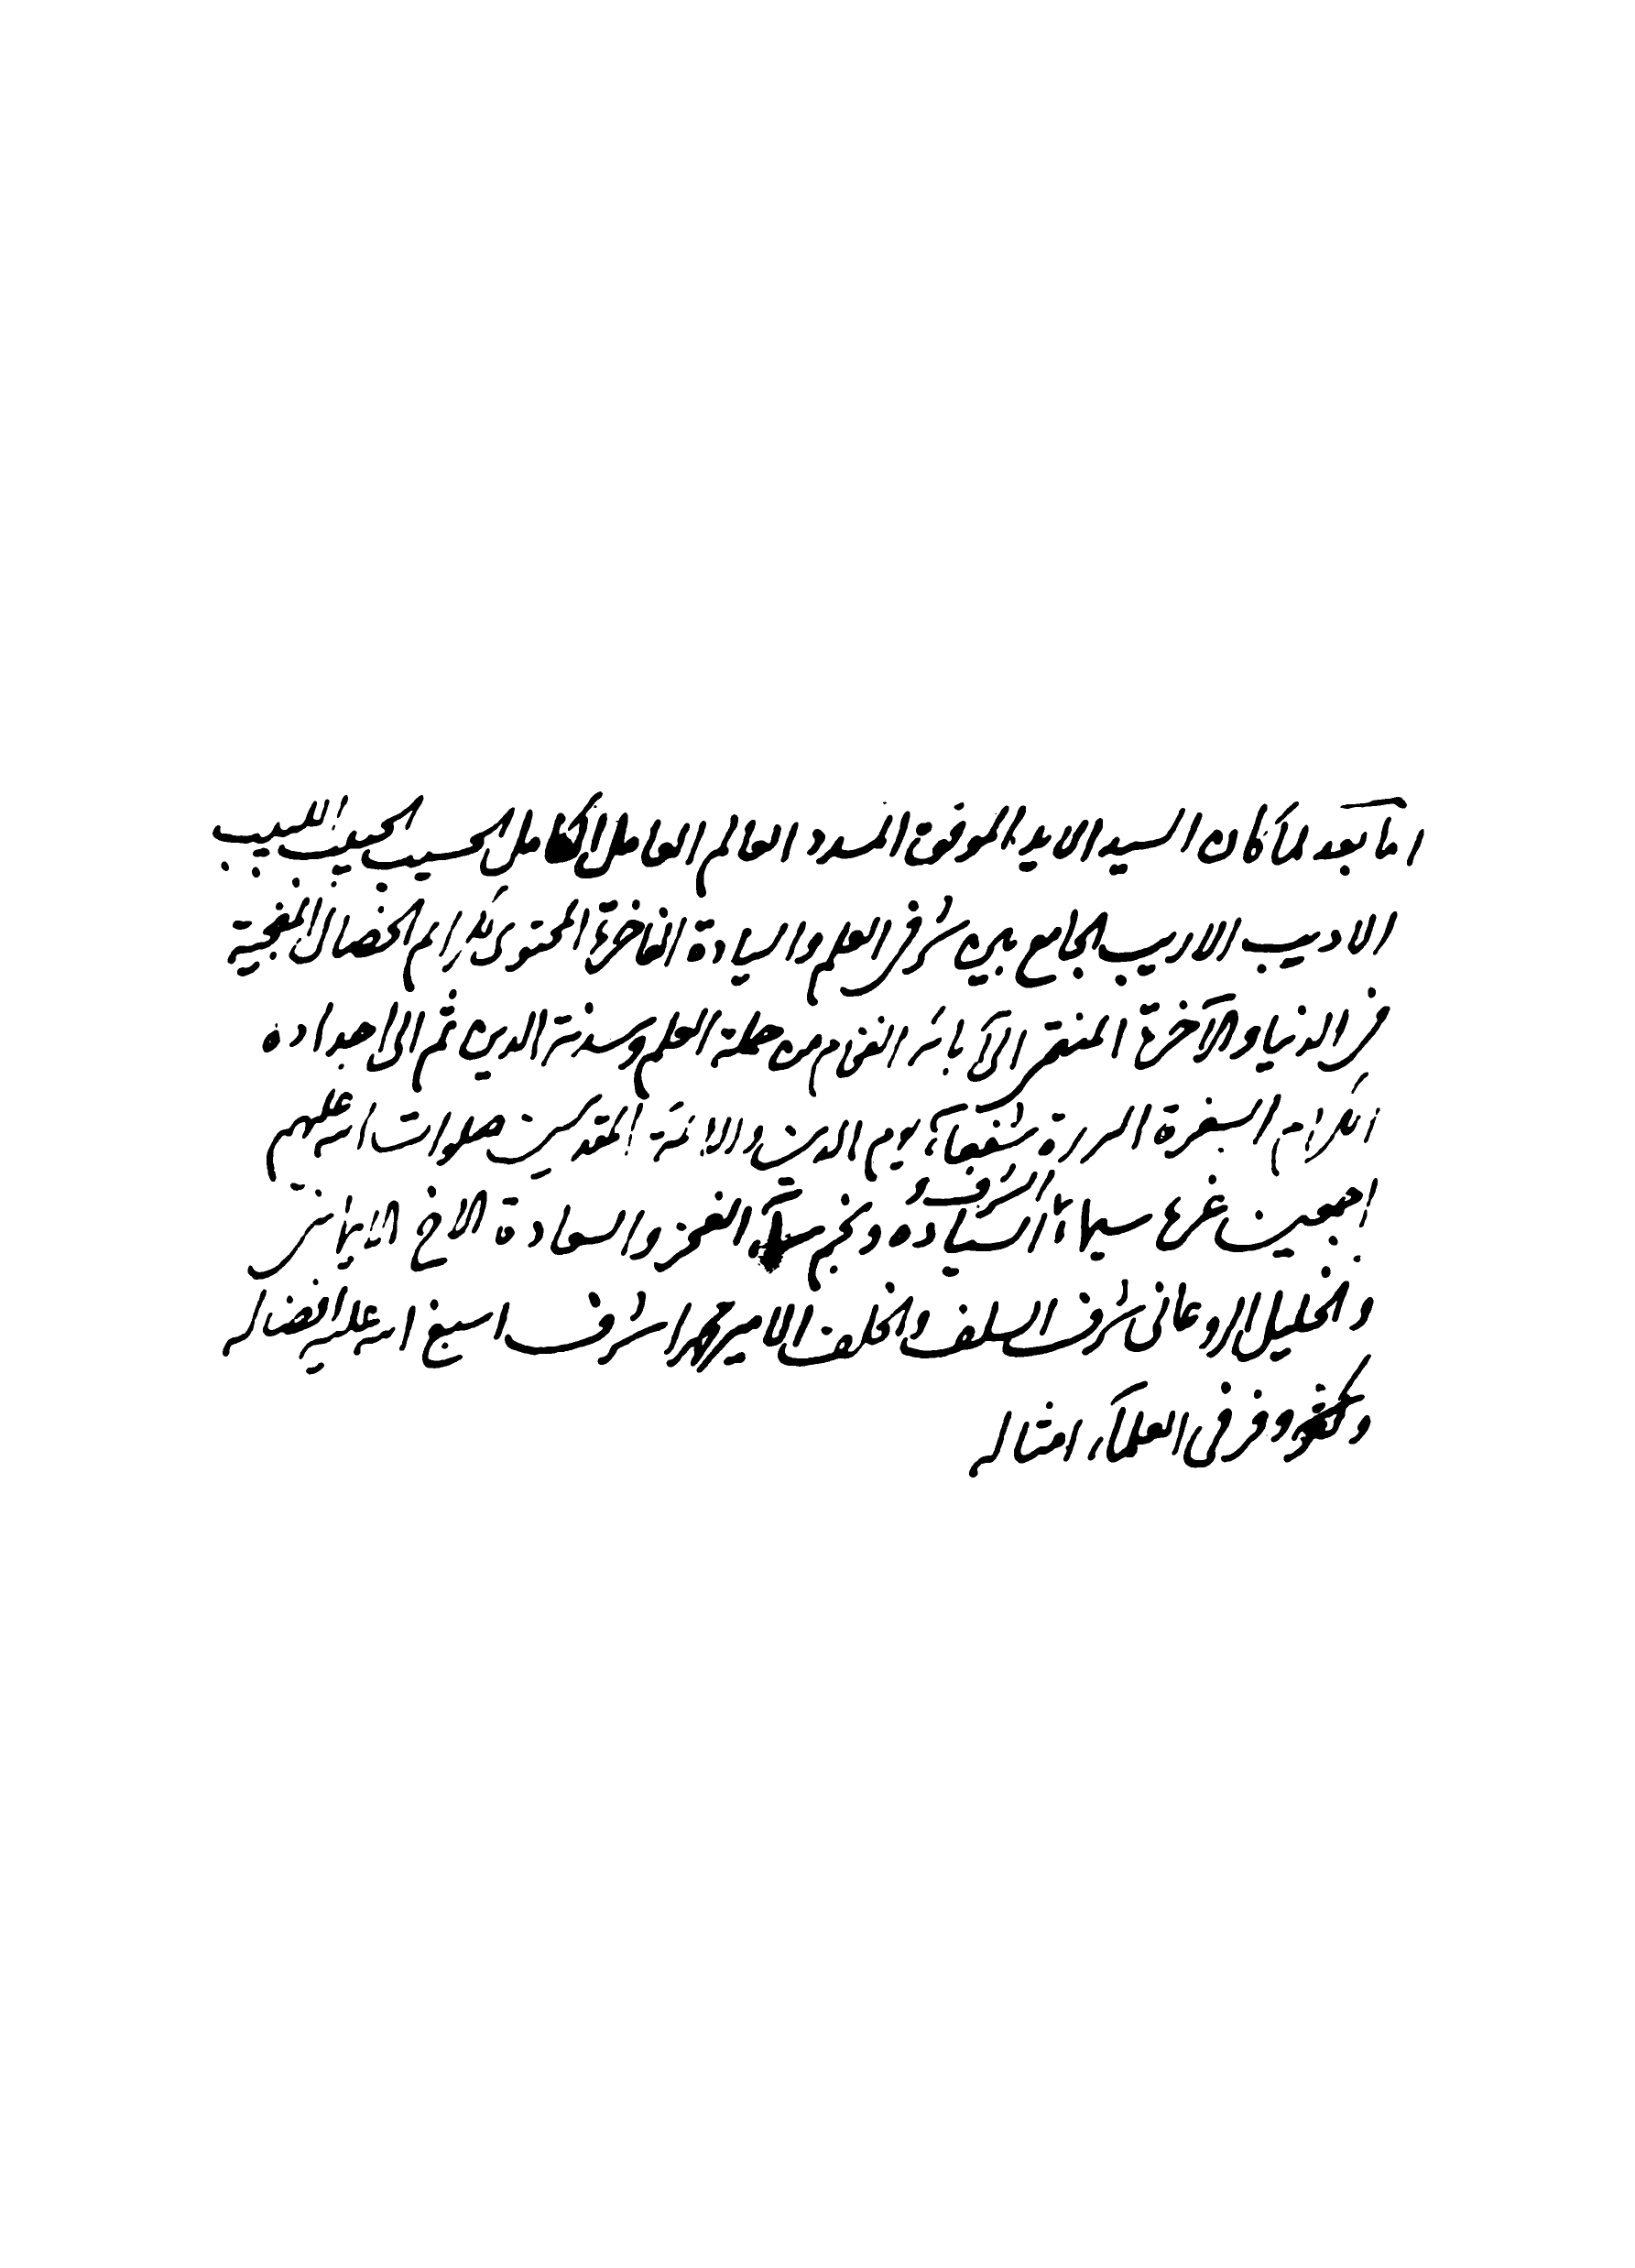 اما بعد لما كان السيد الايد الموفق المسدد العالم العامل الكامل الحسيب النجيب اللبيب
الاديب الاريب الجامع بين شرفى العلم والسيادة الفاخرة المحتوى لمكارم الخصال المنجية
فى الدنيا والآخرة المنتمى الى آبائه الفخام من حملة العلم وسدنة الدين ثم الى اجداده
الكرام السفرة البررة شفعاء يوم الدين والائمة المقدسين صلوات الله عليهم
اجمعين غرة سيماء الشرف والسيادة ونجم سماء الفوز والسعادة الاخ الايمانى
والخليل الروحانى شرف السلف والخلف الامير محمد اشرف اسبغ الله عليه افضاله
وكثر وفى العلماء امثاله